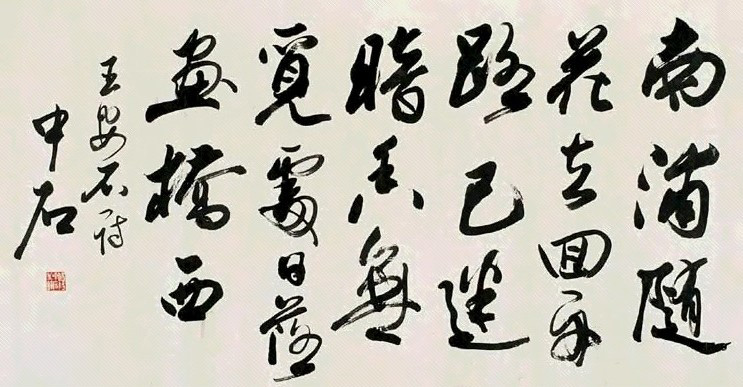 南浦隨
花去回舟
路已迷
暗香無
覓處日落
畫橋西
王安石詩
中石